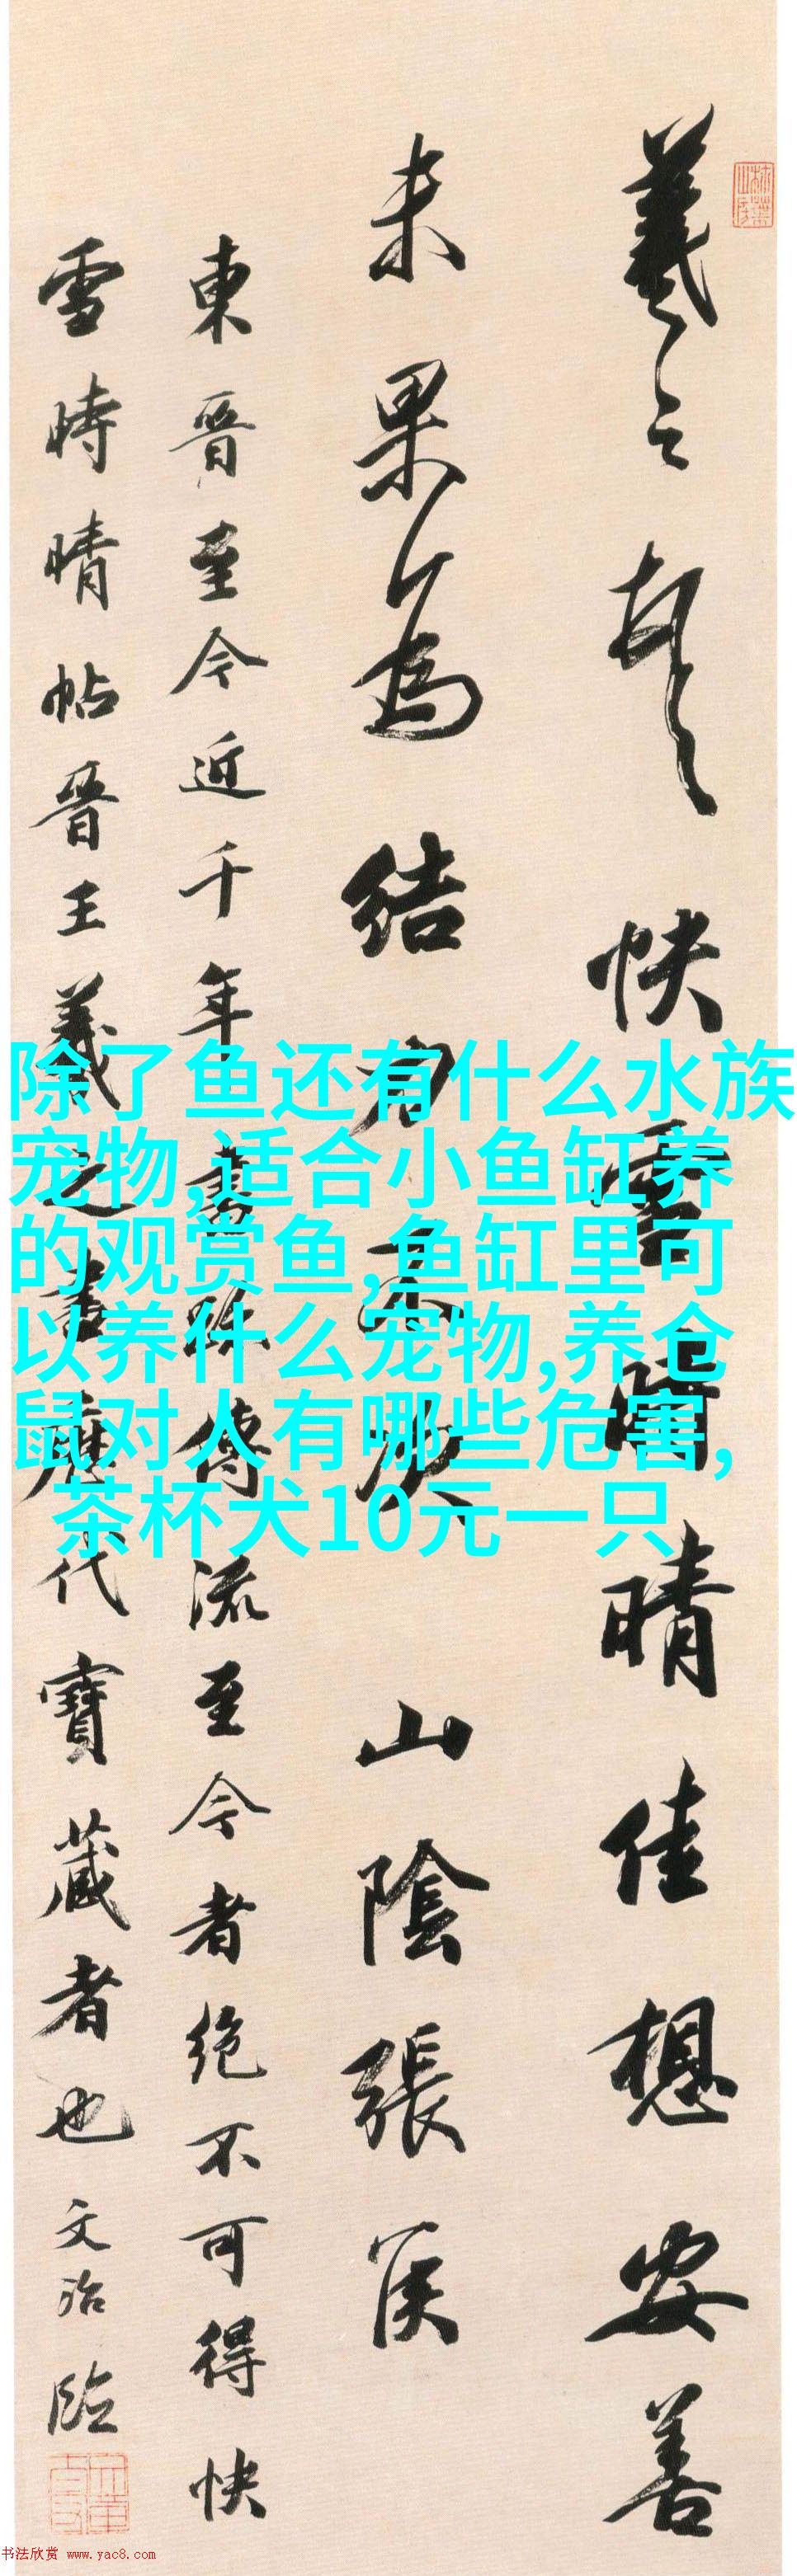 羲之頓首
快雪時晴佳想安善
未果為結力不次
山陰張侯
東晉至今近千年書跡傳流至今者絕不可得快
雪時晴帖晉王羲之書歷代寶藏者也文治臨
除了鱼还有什么水族
宠物,适合小鱼缸养
的观赏鱼,鱼缸里可
以养什么宠物,养仓
鼠对人有哪些危害,
茶杯犬10元一只
书法欣赏 www.yac8.com